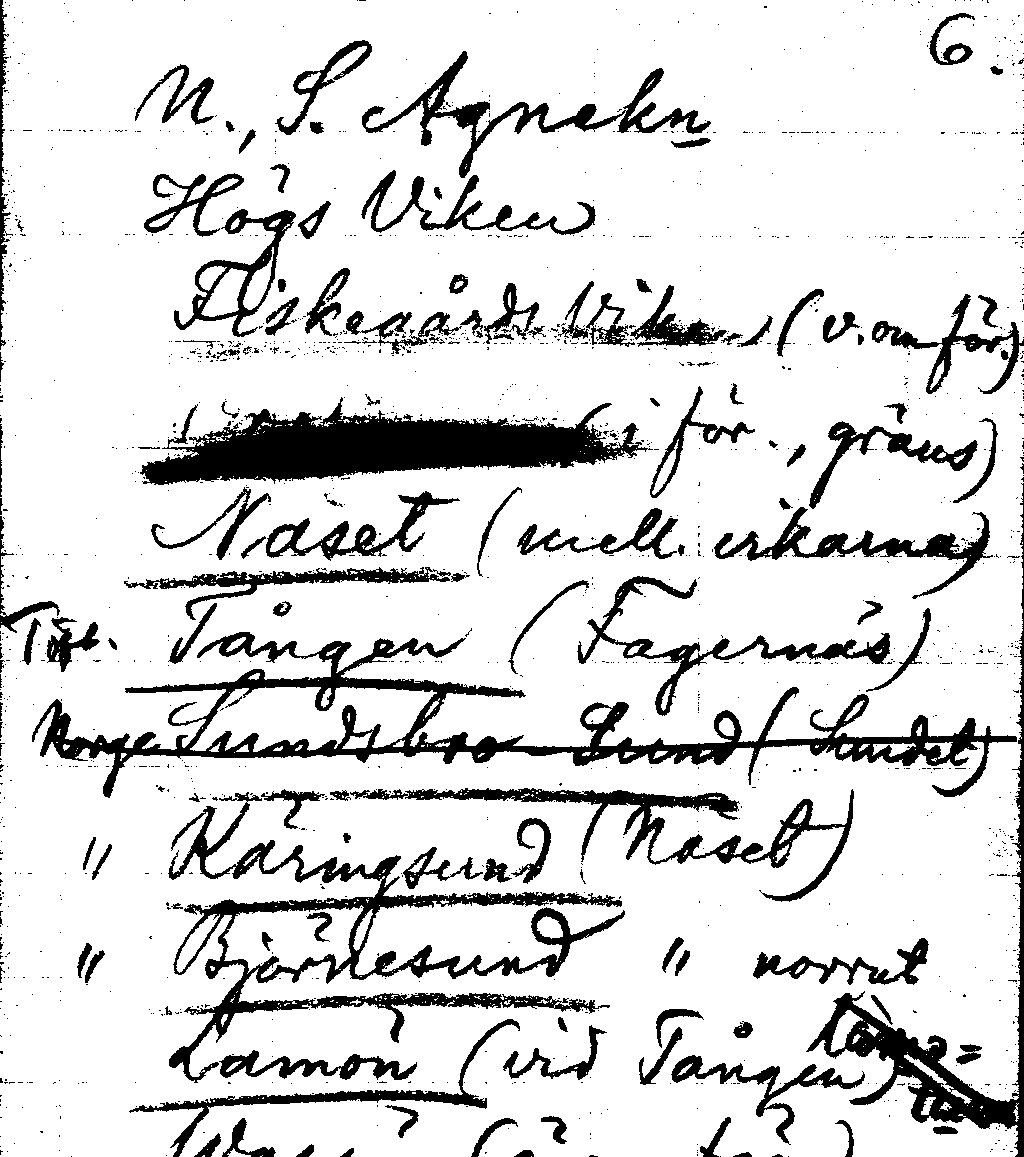 6.
N., S. Agnekn
Högs Viken
Fiskegårds Viken (v. om för.)
(i för., gräns)
Näset (mell. vikarna)
Tången (Fagernäs)
Norge Sundsbro Sund (Sundet)
" Käringsund (Näset)
" Björnesund " norrut
Lamön (vid Tången)